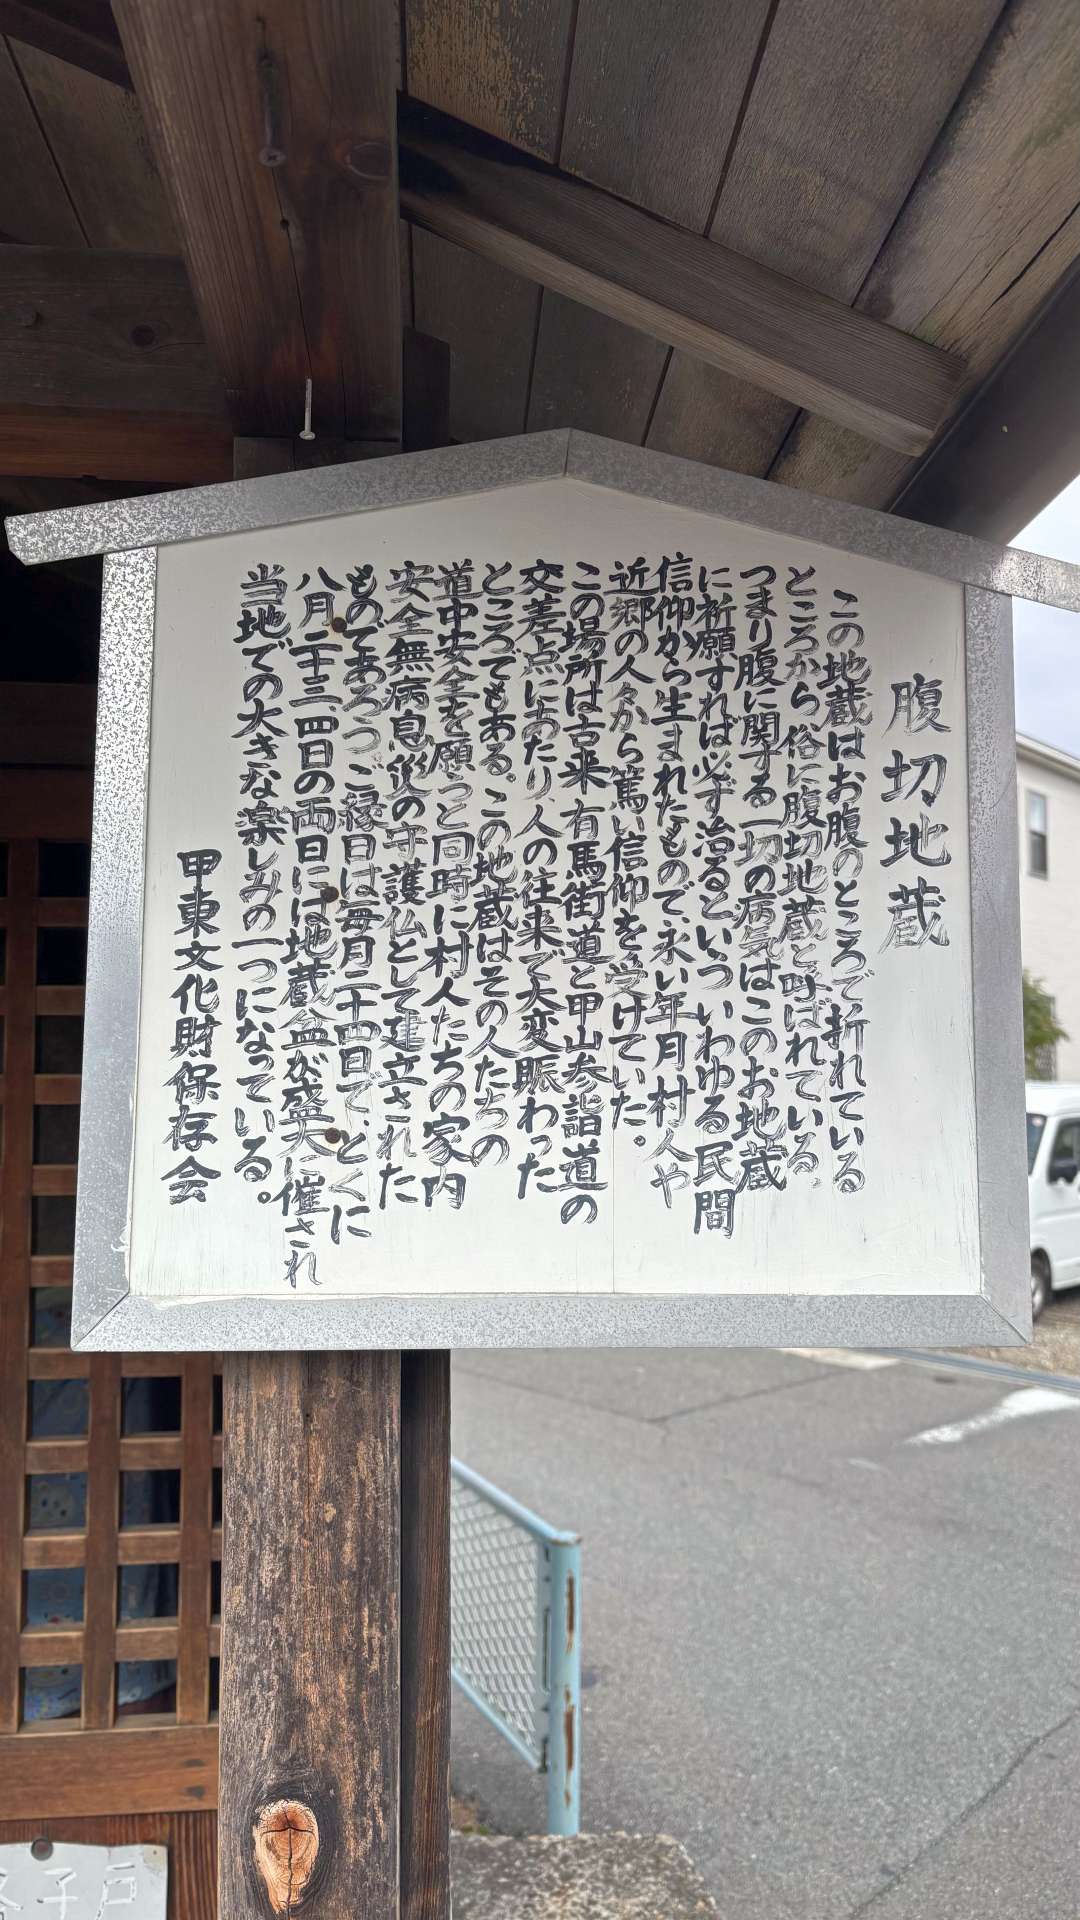 腹切地蔵
この地蔵はお腹のところで折れている
ところから俗に腹切地蔵と呼ばれている。
つまり腹に関する一切の病気はこのお地蔵
に祈願すれば必ず治るといういわゆる民間
信仰から生まれたもので、永い年月村人や
近郷の人々から篤い信仰を受けていた。
この場所は古来有馬街道と甲山参詣道の
交差点にあたり、人の往来で大変賑わった
ところでもある。この地蔵はその人たちの
道中安全を願うと同時に村人たちの家内
安全無病息災の守護仏として建立された
ものであろう。ご縁日は毎月二十四日で、とくに
八月二十三、四日の両日には地蔵盆が盛大に催され
当地での大きな楽しみの一つになっている。
甲東文化財保存会
子戸